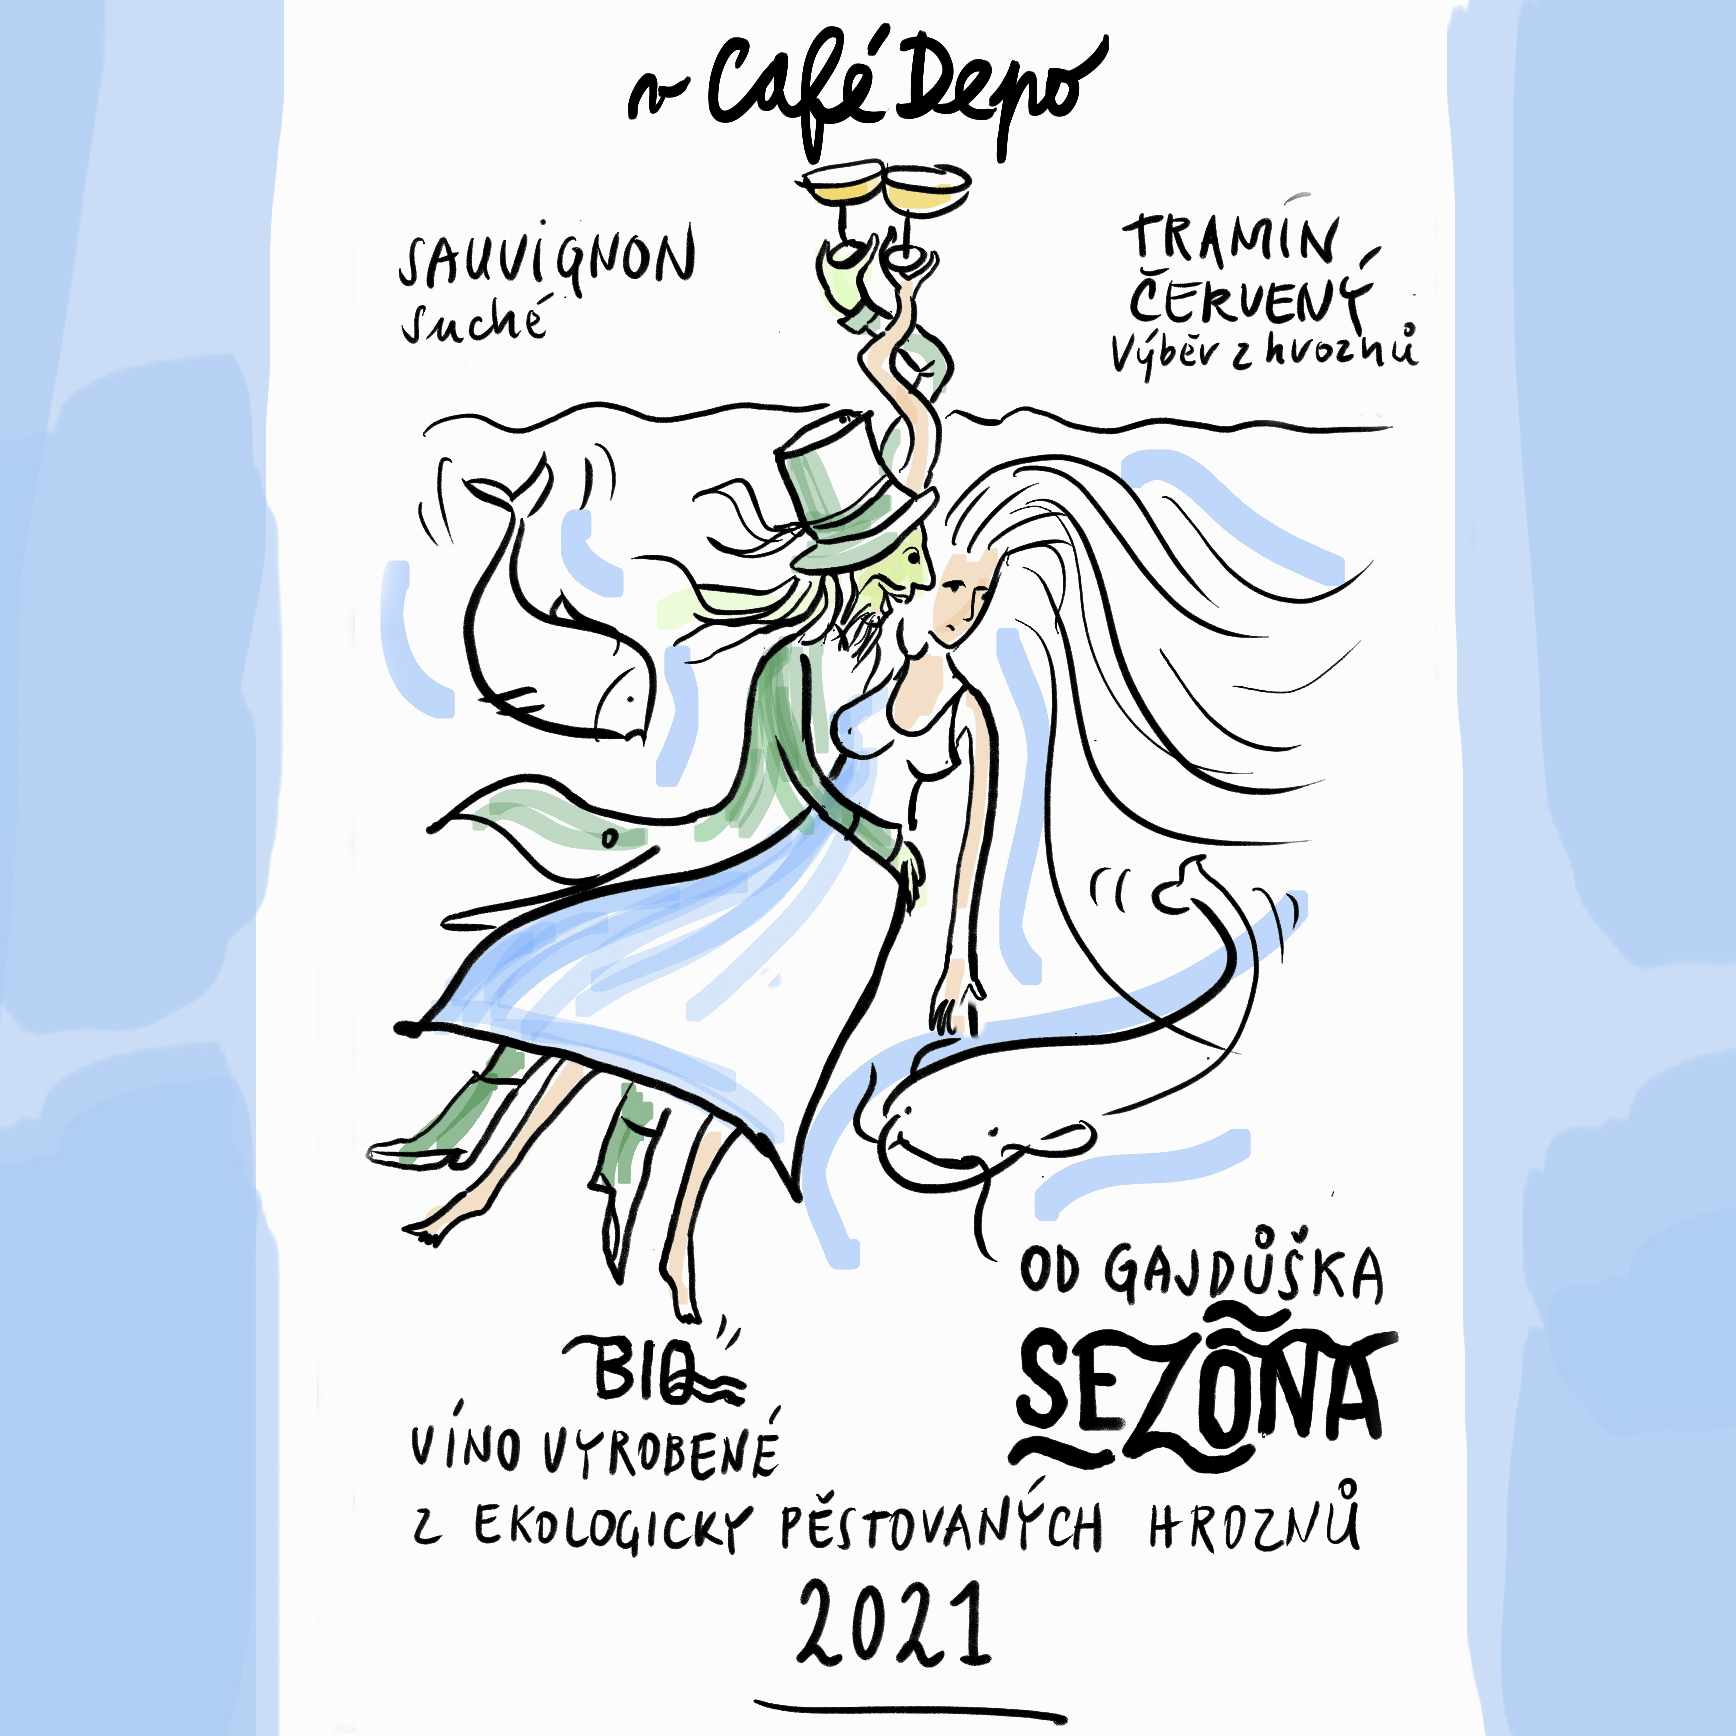 v Café Depo
SAUVIGNON
suché
TRAMÍN
ČERVENÝ
Výběr z hroznů
OD GAJDŮŠKA
SEZÓNA
BIO
VÍNO VYROBENÉ
Z EKOLOGICKY PĚSTOVANÝCH HROZNŮ
2021